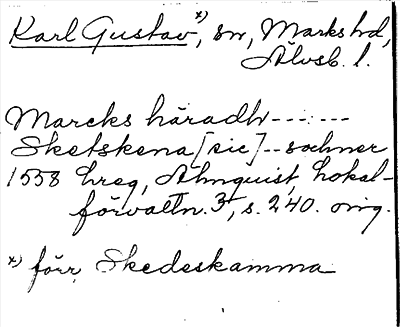 Karl Gustav x), sn, Marks hd,
Älvsb. l.
Marcks häradh -------
Sketskena [sic] -- sochner
1558 hreg, Almquist, Lokal-
förvaltn. 3, s. 240. orig.
x) förr Skedeskamma